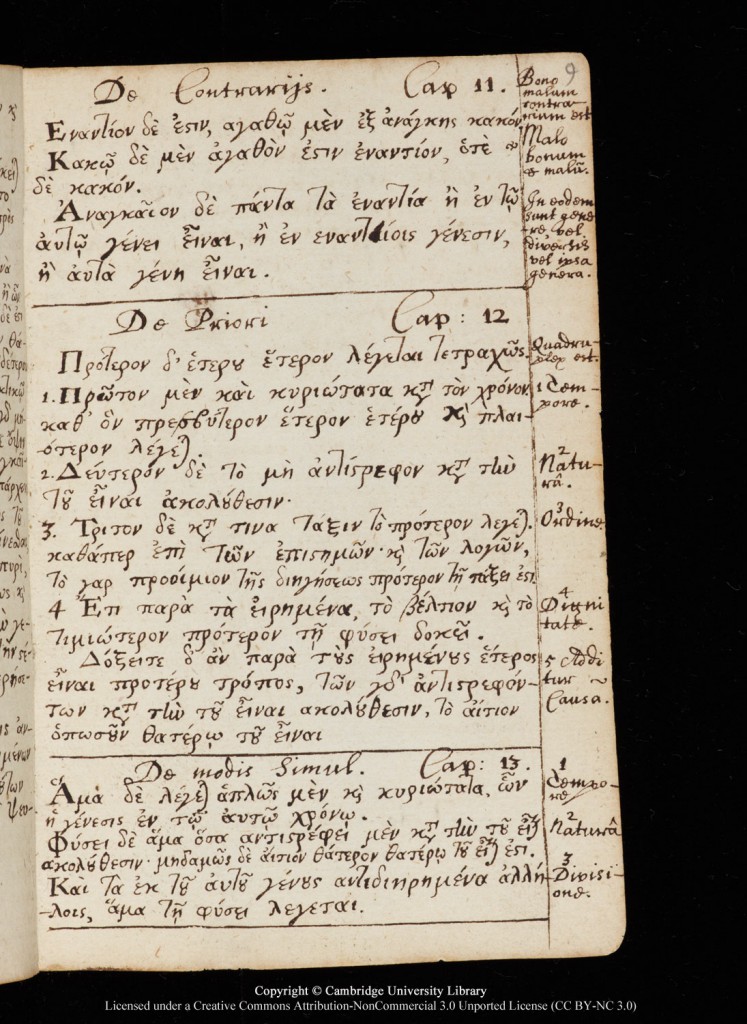 9
De Contrarijs. Cap 11.
Εναντίον δὲ ἐςιν, αγαθῷ μὲν ἐξ ἀνάγκης κακόν
Κακῷ δὲ μὲν ἀγαθὸν ἐςιν ἐναντίον, ὁτὲ
δὲ κακόν.
Ἀναγκαῖον δὲ πάντα τὰ ἐναντία ἢ ἐν τῷ
ἀυτῷ γένει ἶιναι, ἢ ἐν εναντίοις γένεσιν,
ἢ ἀυτὰ γένη ἶιναι.
Bono
malum
contra
rium est
Malo
bonum
& malū.
In eodem
sunt gene
re, vel
diversis
vel ipsa
genera.
De Priori Cap: 12
Πρότερον δ' ἑτέρȣ ἕτερον λέγεται τετραχῶς.
1. Πρῶτον μὲν καὶ κυριώτατα κτ τὸν χρόνον
καθ' ὃν πρεσβύτερον ἕτερον ἑτέρȣ ϗ πλαι-
ότερον λέγε).
2. Δέυτερον δὲ τὸ μὴ ἀντίςρεφον κτ τὴν
τȣ͂ ἶιναι ἀκολȣ́θεσιν.
3. Τριτον δὲ κτ τινα τάξιν τὸ πρότερον λεγε).
καθάπερ ἐπὶ τῶν ἐπιςημῶν. ϗ τῶν λογιῶν,
τὸ γαρ προοίμιον τῆς διηγήσεως πρότερον τῇ τάξει ἐςι.
4 Ἔτι παρὰ τὰ ἐιρημένα, τὸ βέλτιον ϗ τὸ
τιμιώτερον πρότερον τῇ φύσει δοκεῖ.
Δόξειτε δ' ἀν παρὰ τȣ̀ς ἐιρημένȣς ἕτερος
ἶιναι προτέρȣ τρόπος, τῶν γδ' ἀντιςρεφόν-
των κτ τὴν τȣ͂ ἶιναι ακολȣ́θεσιν, τὸ αἴτιον
ὁπωσȣ͂ν θατέρῳ τȣ͂ ἶιναι
Quadru-
plex est.
1 Tem-
pore.
2
Natu-
râ.
3
Ordine
4
Digni
tate.
5 Addi
tur
Causa.
De modis Simul. Cap: 13.
Ἁμὰ δὲ λέγε) ἁπλῶς μὲν ϗ κυριώτατα, ὧν
ἡ γένεσις ἐν τῷ αυτῷ χρόνῳ.
Φύσει δὲ ἅμα ὅσα αντιςρέφει μὲν κτ τὴν τȣ͂ εἶ)
ακολȣ́θεσιν. μηδαμῶς δὲ ἀιτιον θάτερον θατέρῳ τȣ͂ εἶ) ἐςι.
Και τὰ ἐκ τȣ͂ ἀυτȣ͂ γένȣς αντιδιῃρημένα ἀλλή-
-λοις, ἅμα τῇ φύσει λεγεται.
1
Tempo-
re
2
Naturâ
3
Divisi-
one.
Copyright © Cambridge University Library
Licensed under a Creative Commons Attribution-NonCommercial 3.0 Unported License (CC BY-NC 3.0)